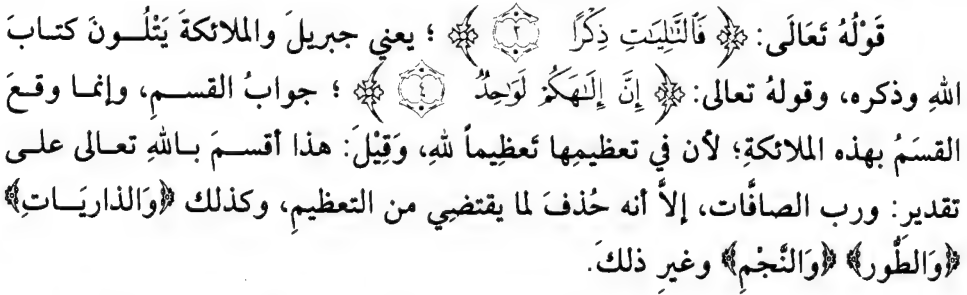 قَوْلُهُ تَعَالَى: ﴿ فَٱلتَّٰلِيَٰتِ ذِكْرًا ٣ ﴾ ؛ يعني جبريلَ والملائكةَ يَتْلُـونَ كتـابَ
اللهِ وذكره، وقولهُ تعالى: ﴿ إِنَّ إِلَٰهَكُمْ لَوَٰحِدٌ ٤ ﴾ ؛ جوابُ القسـمِ، وإنمـا وقـعَ
القسَمُ بهذه الملائكةِ؛ لأن في تعظيمِها تَعظِيماً للهِ، وَقِيْلَ: هذا أقسـمَ بـاللهِ تعـالى علـى
تقديرِ: ورب الصافَّات، إلاَّ أنه حُذفَ لما يقتضِي من التعظيمِ، وكذلك ﴿وَالذاريَـاتِ﴾
﴿وَالطُّور﴾ ﴿وَالنَّجْمِ﴾ وغيرِ ذلكَ.